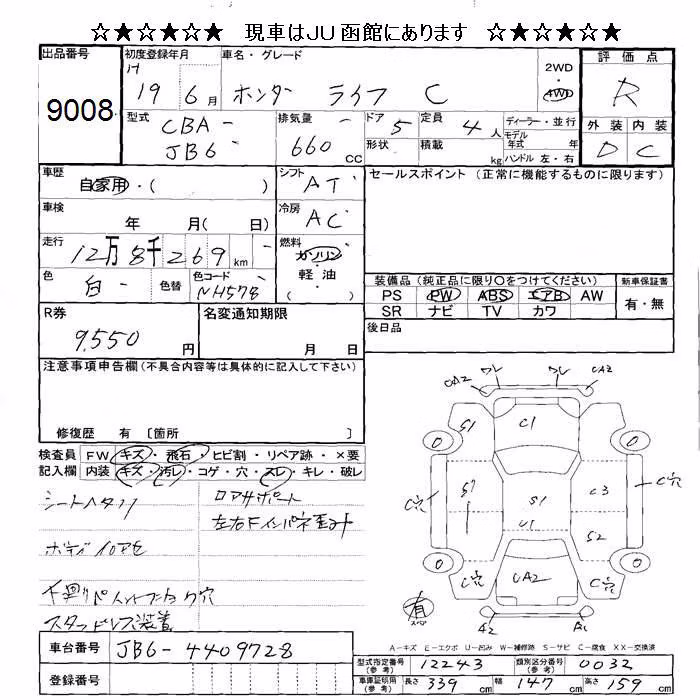 ☆★☆★☆★ 現車はJU函館にあります ☆★☆★☆★
出品番号
9008
初度登録年月
H 19 6月
車名・グレード
ホンダー ライフ C
2WD
4WD
評価点
R
型式
CBA-
JB6
排気量
660cc
ドア 5
形状
定員 4人
積載 kg
ディーラー・並行
モデル年式 年式
ハンドル 左・右
外装 内装
D C
車歴
自家用・( )
シフト AT
セールスポイント (正常に機能するものに限ります)
車検
年 月( 日)
冷房 AC
走行
12万8千269km
燃料
ガソリン
・
軽油
( )
色
白
色替
色コード
NH578
装備品(純正品に限り○をつけてください)
PS PW ABS エアB AW
SR ナビ TV カワ
新車保証書
有・無
R券
9,550円
名変通知期限
月 日
後日品
注意事項申告欄(不具合内容等は具体的に記入して下さい)
修復歴 有 〔箇所 〕
検査員記入欄
FW キズ・飛石・ヒビ割・リペア跡・×要
内装 キズ・汚レ・コゲ・穴・スレ・キレ・破レ
シートヘタリ
ロアサポート
左右Fインパネ歪み
下廻りペイント
穴
スタッドレス装着
CA2 ワレ ワレ CA2
S1 C1
C穴 S1 S1 C3 C穴
U1 S2
C穴 CA2 C穴
A2 A1
有
スペア
A-キズ E-エクボ U-凹み W-補修跡 S-サビ C-腐食 XX-交換済
車台番号 JB6-4409728
登録番号
型式指定番号(参考) 12243
類別区分番号(参考) 0032
車庫証明用(参考) 長さ 339cm 幅 147cm 高さ 159cm